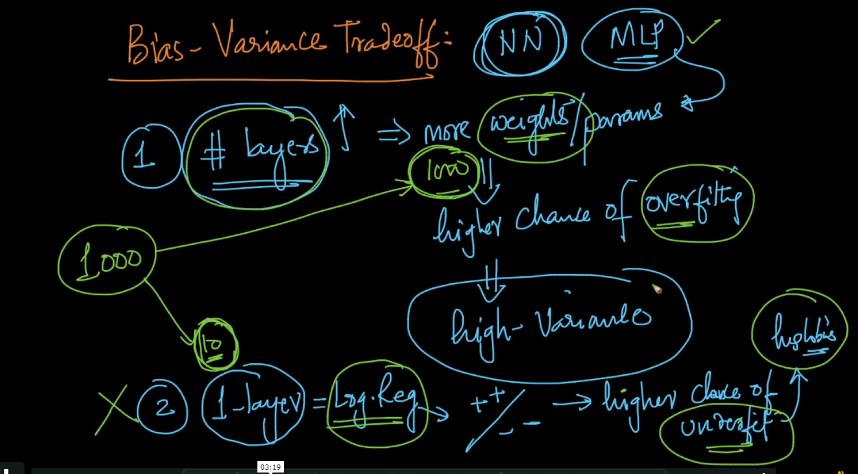 Bias-Variance Tradeoff: NN MLP ✓
1 # layers ↑ ⇒ more weights/params
1000
higher chance of overfitting
1,000
high-Variance
high bias
10
2 1-layer = Log.Reg → ++/-- → higher chance of
underfit
03:19